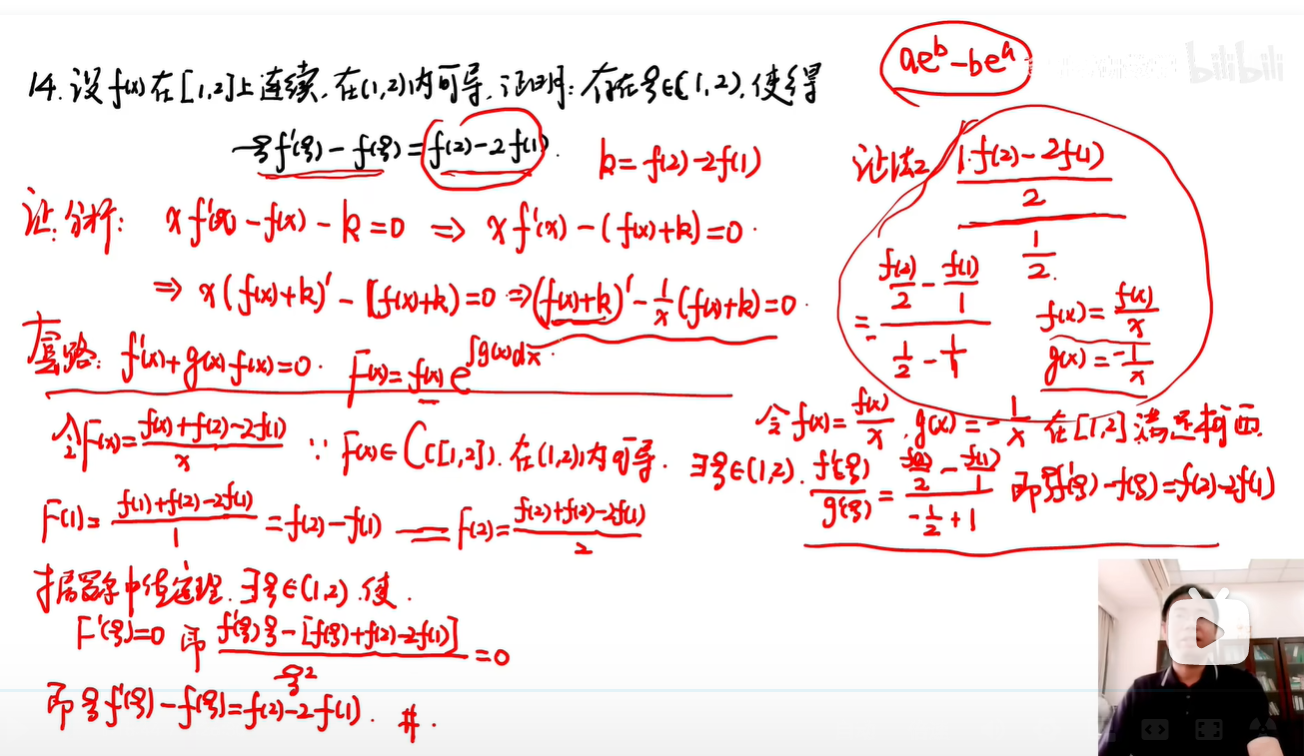 14.设f(x)在[1,2]上连续.在(1,2)内可导.证明:存在ξ∈(1,2).使得
ξf'(ξ)-f(ξ)=f(2)-2f(1).
k=f(2)-2f(1)
证:分析: xf'(x)-f(x)-k=0 ⇒ xf'(x)-(f(x)+k)=0.
⇒ x(f(x)+k)'-[f(x)+k)=0 ⇒ (f(x)+k)'-1/x(f(x)+k)=0.
套路: f'(x)+g(x)f(x)=0. F(x)=f(x)e^{∫g(x)dx}
令F(x)=(f(x)+f(2)-2f(1))/x ∵ F(x)∈C([1,2]).在(1,2)内可导.
F(1)=(f(1)+f(2)-2f(1))/1=f(2)-f(1) = F(2)=(f(2)+f(2)-2f(1))/2
根据罗尔中值定理.∃ξ∈(1,2).使.
F'(ξ)=0 即 (f'(ξ)ξ-[f(ξ)+f(2)-2f(1)])/ξ²=0
即ξf'(ξ)-f(ξ)=f(2)-2f(1). #.
ae^b-be^a
bilibili
证法2 ((1·f(2)-2f(1))/2)/(1/2.)
=(f(2)/2-f(1)/1)/(1/2-1/1)
f(x)=f(x)/x
g(x)=-1/x
令f(x)=f(x)/x.g(x)=-1/x 在[1,2]满足柯西.
∃ξ∈(1,2).f'(ξ)/g'(ξ)=(f(2)/2-f(1)/1)/(-1/2+1) 即ξf'(ξ)-f(ξ)=f(2)-2f(1)